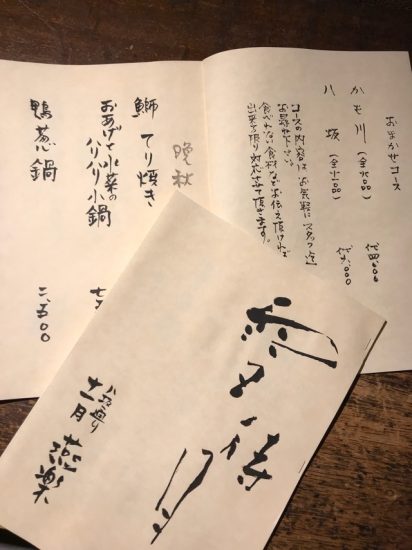 おまかせコース
かも川
八坂
コースの内容は、お気軽にスタッフ迄
お尋ね下さい。
食べれない食材などお伝え頂ければ
出来る限り対応させて頂きます。
晩秋
鰤 てり焼き
おあげと水菜の
ハリハリ小鍋
鴨葱鍋 二、五〇〇
雪待月
八坂通り
十一月 燕楽